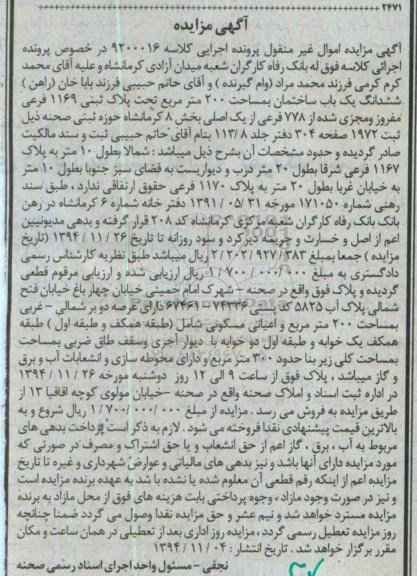 ۲۴۷۱
آگهی مزایده
آگهی مزایده اموال غیر منقول پرونده اجرایی کلاسه ۹۲۰۰۰۱۶ در خصوص پرونده
اجرائی کلاسه فوق له بانک رفاه کارگران شعبه میدان آزادی کرمانشاه و علیه آقای محمد
کرم کرمی فرزند محمد مراد (وام گیرنده ) و آقای حاتم حبیبی فرزند بابا خان (راهن )
ششدانگ یک باب ساختمان بمساحت ۲۰۰ متر مربع تحت پلاک ثبتی ۱۱۶۹ فرعی
مفروز ومجزی شده از ۷۷۸ فرعی از یک اصلی بخش ۸ کرمانشاه حوزه ثبتی صحنه ذیل
ثبت ۱۹۷۲ صفحه ۳۰۴ دفتر جلد ۱۱۳/۸ بنام آقای حاتم حبیبی ثبت و سند مالکیت
صادر گردیده و حدود مشخصات آن بشرح ذیل میباشد : شمالا بطول ۱۰ متر به پلاک
۱۱۶۷ فرعی شرقا بطول ۲۰ متر درب و دیواریست به فضای سبز جنوبا بطول ۱۰ متر
به خیابان غربا بطول ۲۰ متر به پلاک ۱۱۷۰ فرعی حقوق ارتفاقی ندارد ، طبق سند
رهنی شماره ۱۷۱۰۵۰ مورخه ۳۱/ ۰۵ /۱۳۹۱ دفتر خانه شماره ۶ کرمانشاه در رهن
بانک رفاه کارگران شعبه مرکزی کرمانشاه کد ۲۰۸ قرار گرفته و بدهی مدیونین
اعم از اصل و خسارت و جریمه دیرکرد و سود روزانه تا تاریخ ۲۶ / ۱۱ / ۱۳۹۴ (تاریخ
مزایده ) جمعا بمبلغ ۲/۲۰۲/۹۲۷/۳۸۳ ریال میباشد طبق نظریه کارشناس رسمی
دادگستری به مبلغ ۱/۷۰۰/۰۰۰/۰۰۰ ریال ارزیابی شده و ارزیابی مرقوم قطعی
گردیده و پلاک فوق واقع در صحنه - شهرک امام خمینی خیابان چهار باغ خیابان فتح
شمالی پلاک آب ۵۸۲۵ کد پستی ۷۴۳۳۶-۶۷۴۶۱ دارای عرصه دو بر شمالی - غربی
بمساحت ۲۰۰ متر مربع و اعیانی مسکونی شامل (طبقه همکف و طبقه اول ) طبقه
همکف یک خوابه و طبقه اول دو خوابه با دیوار آجری وسقف طاق ضربی بمساحت
بمساحت کلی زیر بنا حدود ۳۰۰ متر مربع و دارای محوطه سازی و انشعابات آب و برق
و گاز میباشد ، پلاک فوق از ساعت ۹ الی ۱۲ روز دوشنبه مورخه ۲۶ / ۱۱ / ۱۳۹۴
در اداره ثبت اسناد و املاک صحنه واقع در صحنه -خیابان مولوی کوچه اقاقیا ۱۳ از
طریق مزایده به فروش می رسد . مزایده از مبلغ ۱/۷۰۰/۰۰۰/۰۰۰ ریال شروع و به
بالاترین قیمت پیشنهادی نقدا فروخته می شود . لازم به ذکر است پرداخت بدهی های
مربوط به آب ، برق ، گاز اعم از حق انشعاب و یا حق اشتراک و مصرف در صورتی که
مورد مزایده دارای آنها باشد و نیز بدهی های مالیاتی و عوارض شهرداری و غیره تا تاریخ
مزایده اعم از اینکه رقم قطعی آن معلوم شده یا نشده با شد به عهده برنده مزایده است
و نیز در صورت وجود مازاد ، وجوه پرداختی بابت هزینه های فوق از محل مازاد به برنده
مزایده مسترد خواهد شد و نیم عشر و حق مزایده نقدا وصول می گردد ضمنا چنانچه
روز مزایده تعطیل رسمی گردد ، مزایده روز اداری بعد از تعطیلی در همان ساعت و مکان
مقرر برگزار خواهد شد . تاریخ انتشار : ۰۴ / ۱۱ / ۱۳۹۴
نجفی - مسئول واحد اجرای اسناد رسمی صحنه